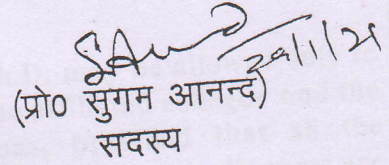 29/1/21
(प्रो0 सुगम आनन्द)
सदस्य